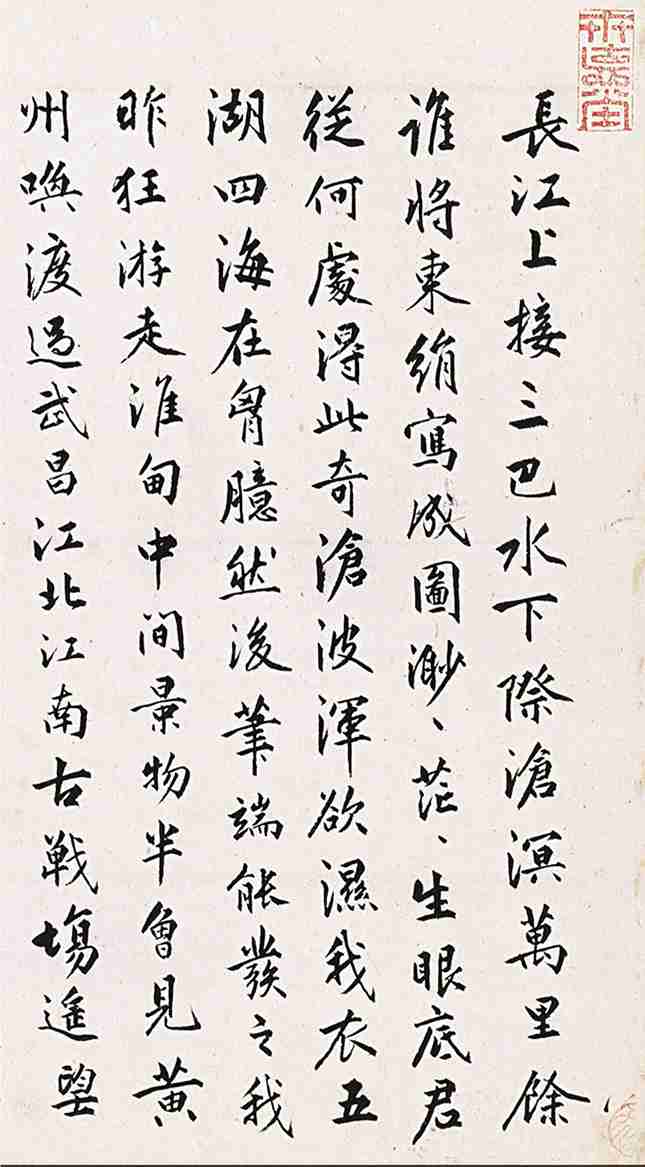 長江上接三巴水下際滄溟萬里餘
誰將東絹寫成圖渺、茫、生眼底君
從何處得此奇滄波渾欲濕我衣五
湖四海在胷臆然後筆端能發之我
昨狂游走淮甸中間景物半曾見黄
州喚渡過武昌江北江南古戰場遥望